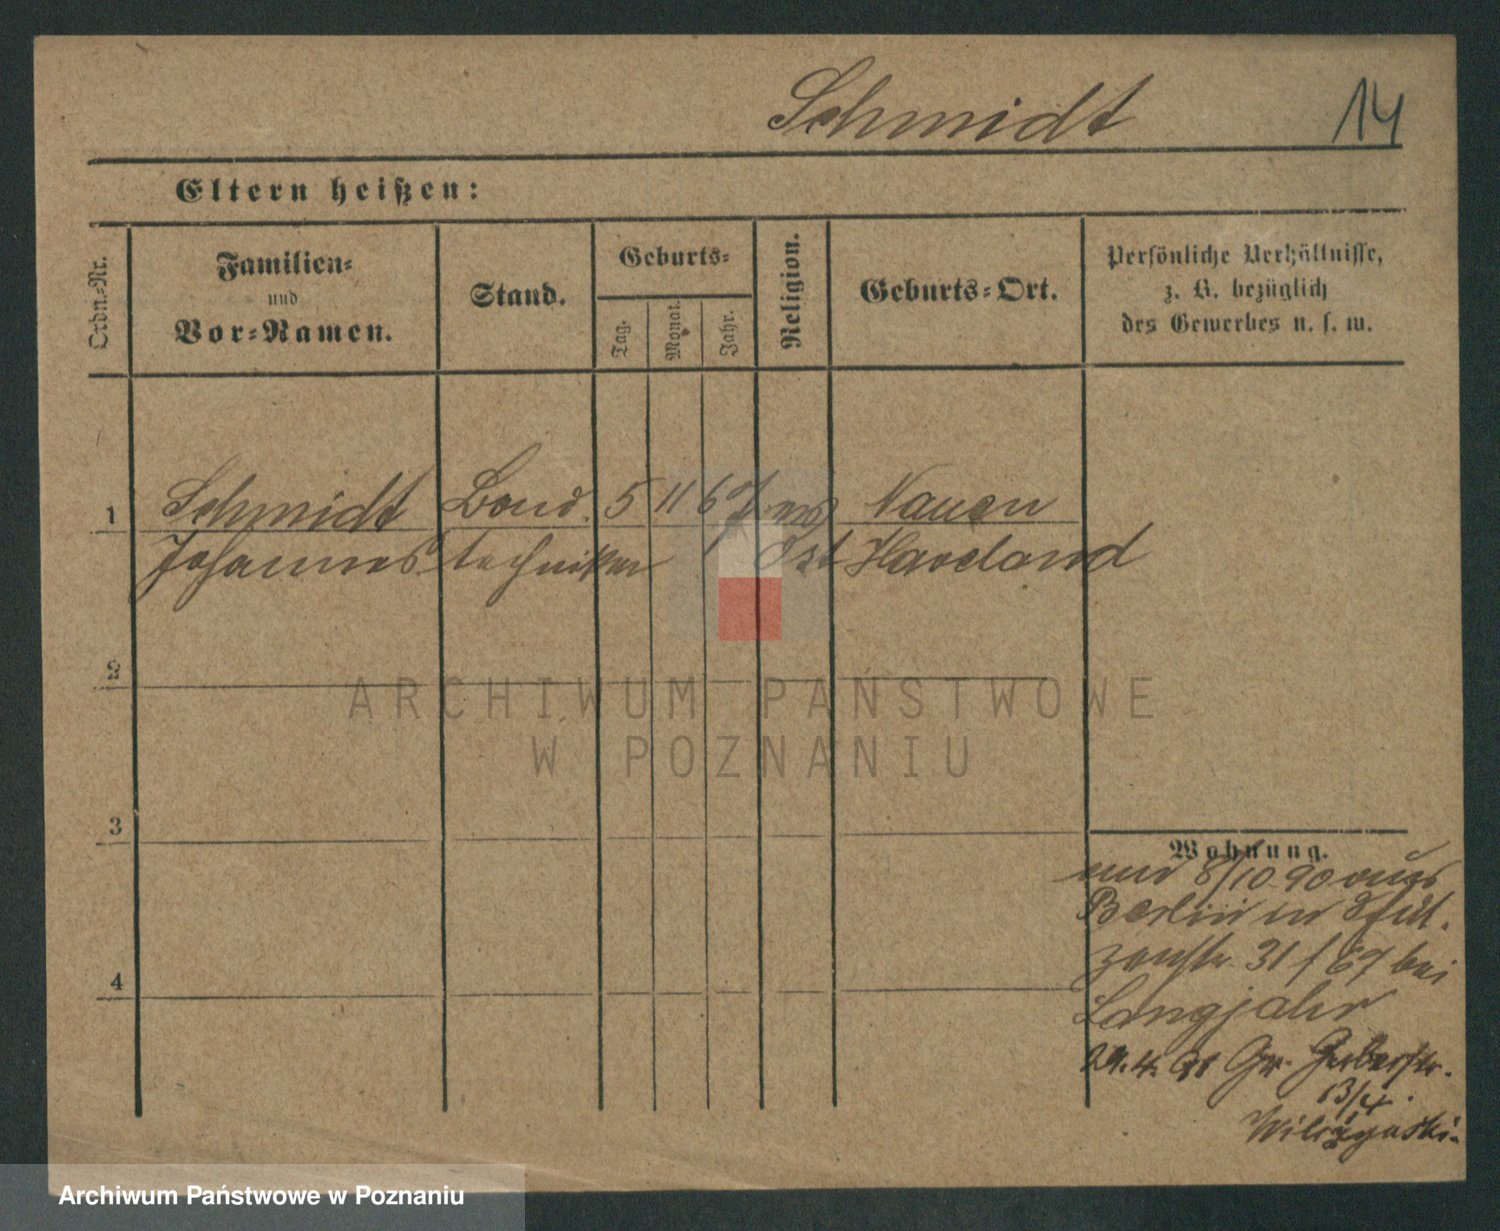 Schmidt 14
Eltern heißen:
Ordn.-Nr.
Familien-
und
Vor-Namen.
Stand.
Geburts-
Tag.
Monat.
Jahr.
Religion.
Geburts-Ort.
Persönliche Verhältnisse,
z. B. bezüglich
des Gewerbes u. s. w.
1 Schmidt 5 11 67 Nauen
Johannes techniker Ost Havelland
2
3
4
Wohnung.
8/10 90 aus
Berlin in
31 / 67 bei
Langjahr
29.4.91 Gr. Gerberstr.
13/4.
Wilczynski.
ARCHIWUM PAŃSTWOWE
W POZNANIU
Archiwum Państwowe w Poznaniu